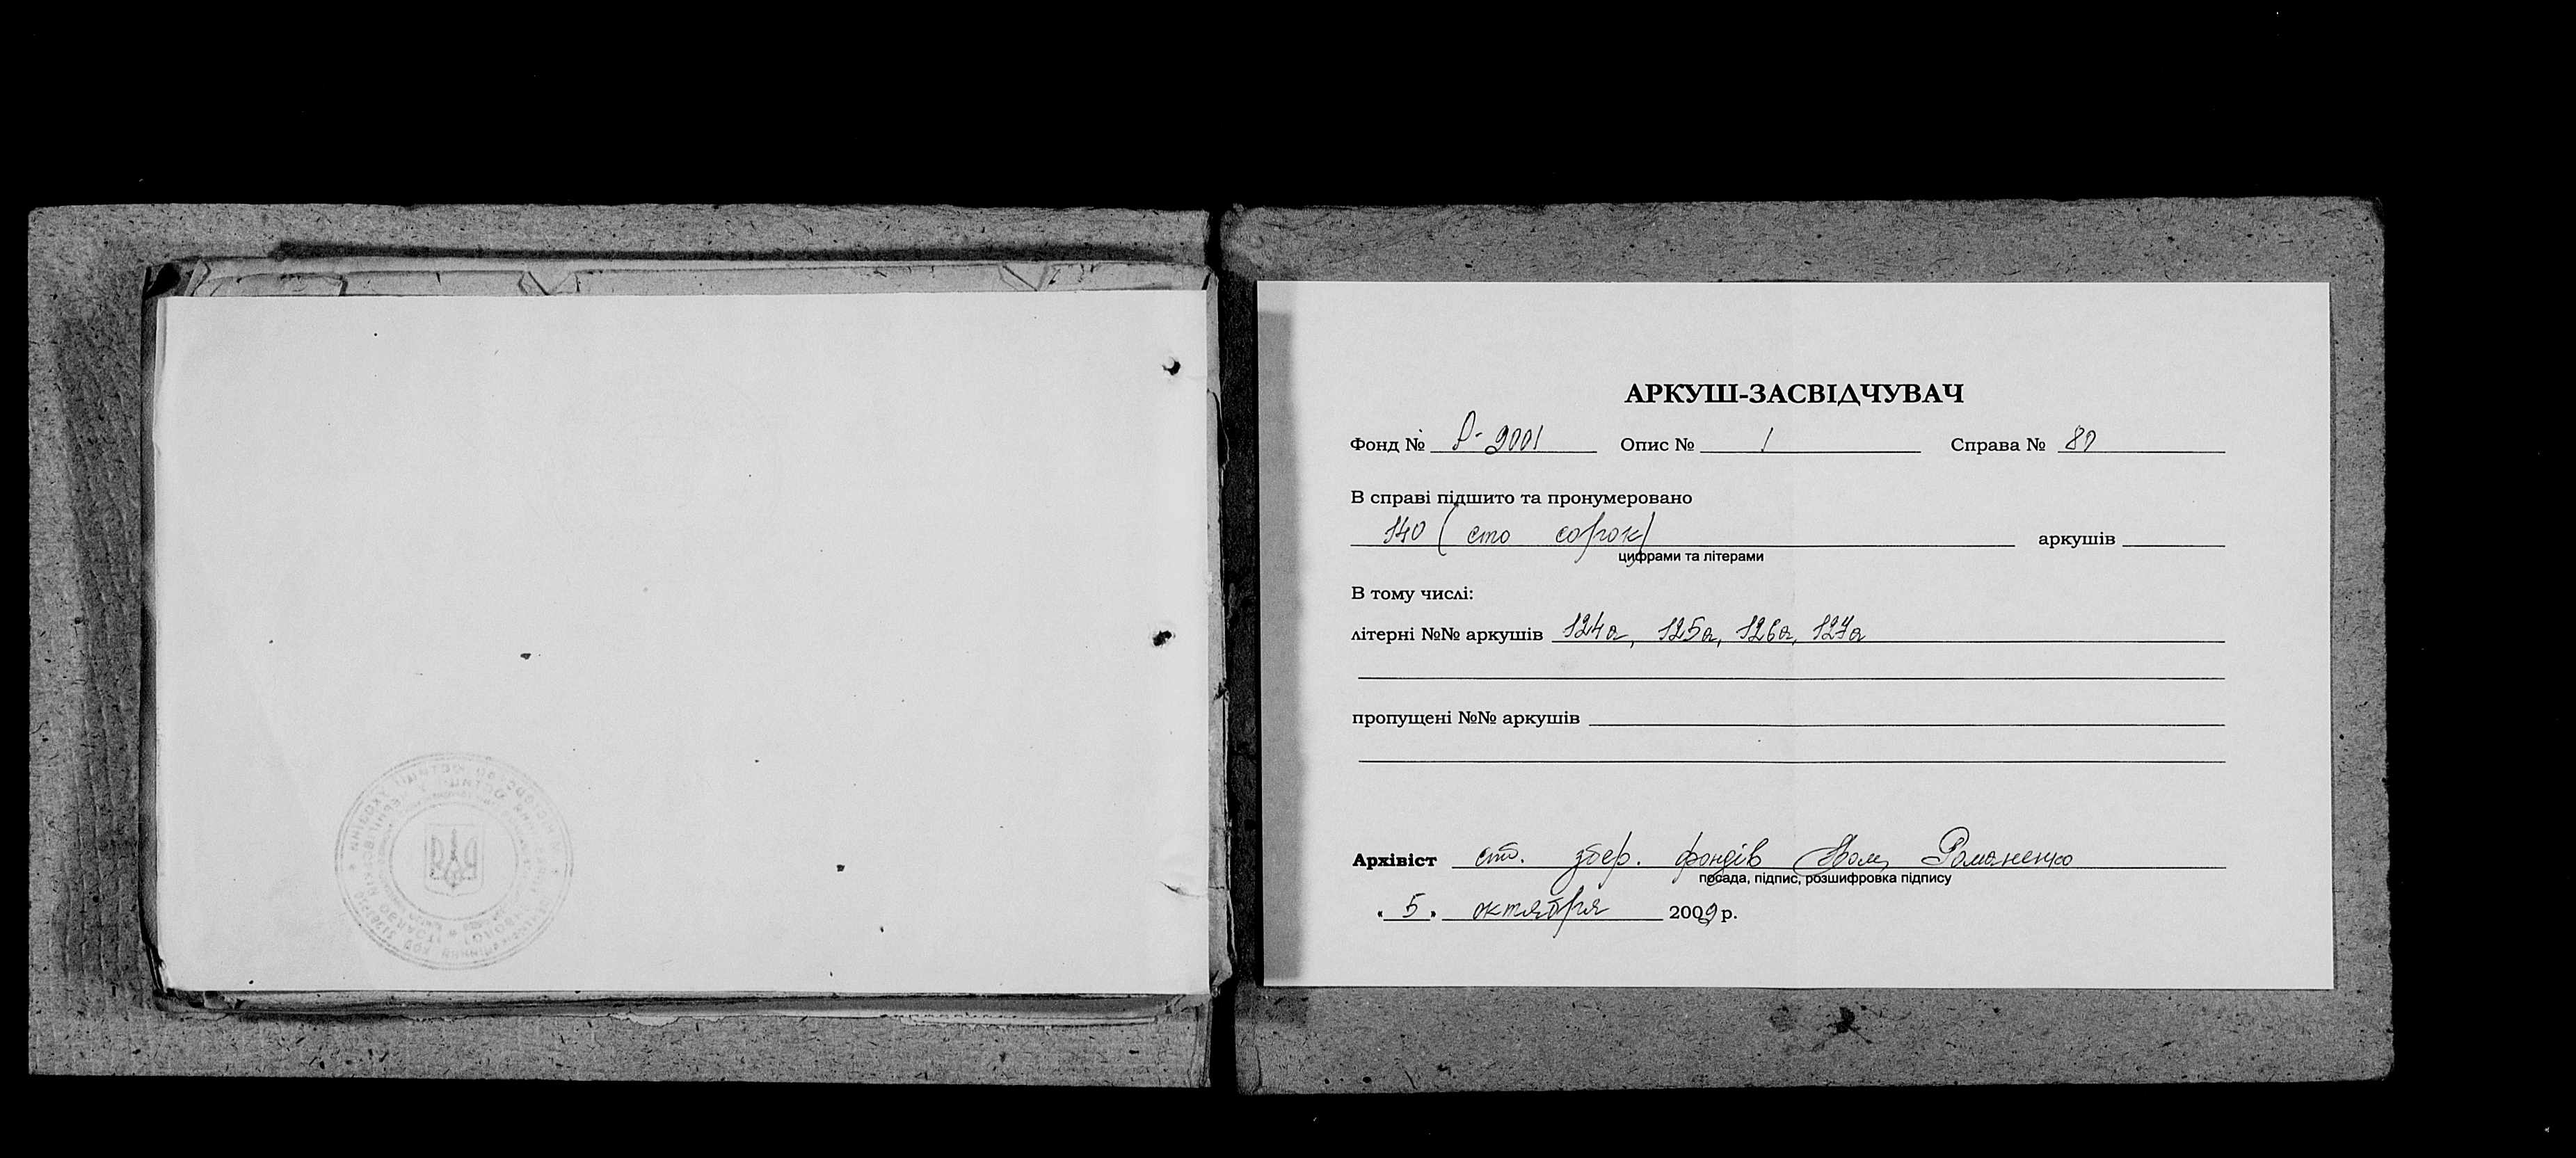 АРКУШ-ЗАСВІДЧУВАЧ
Фонд № Р-9001 Опис № 1 Справа №
В справі підшито та пронумеровано
140 (сто сорок) аркушів
цифрами та літерами
В тому числі:
літерні №№ аркушів 124а, 125а, 126а, 127а
пропущені №№ аркушів
Архівіст ст. збер. фондів Романенко
посада, підпис, розшифровка підпису
« 5 » октября 2009 р.